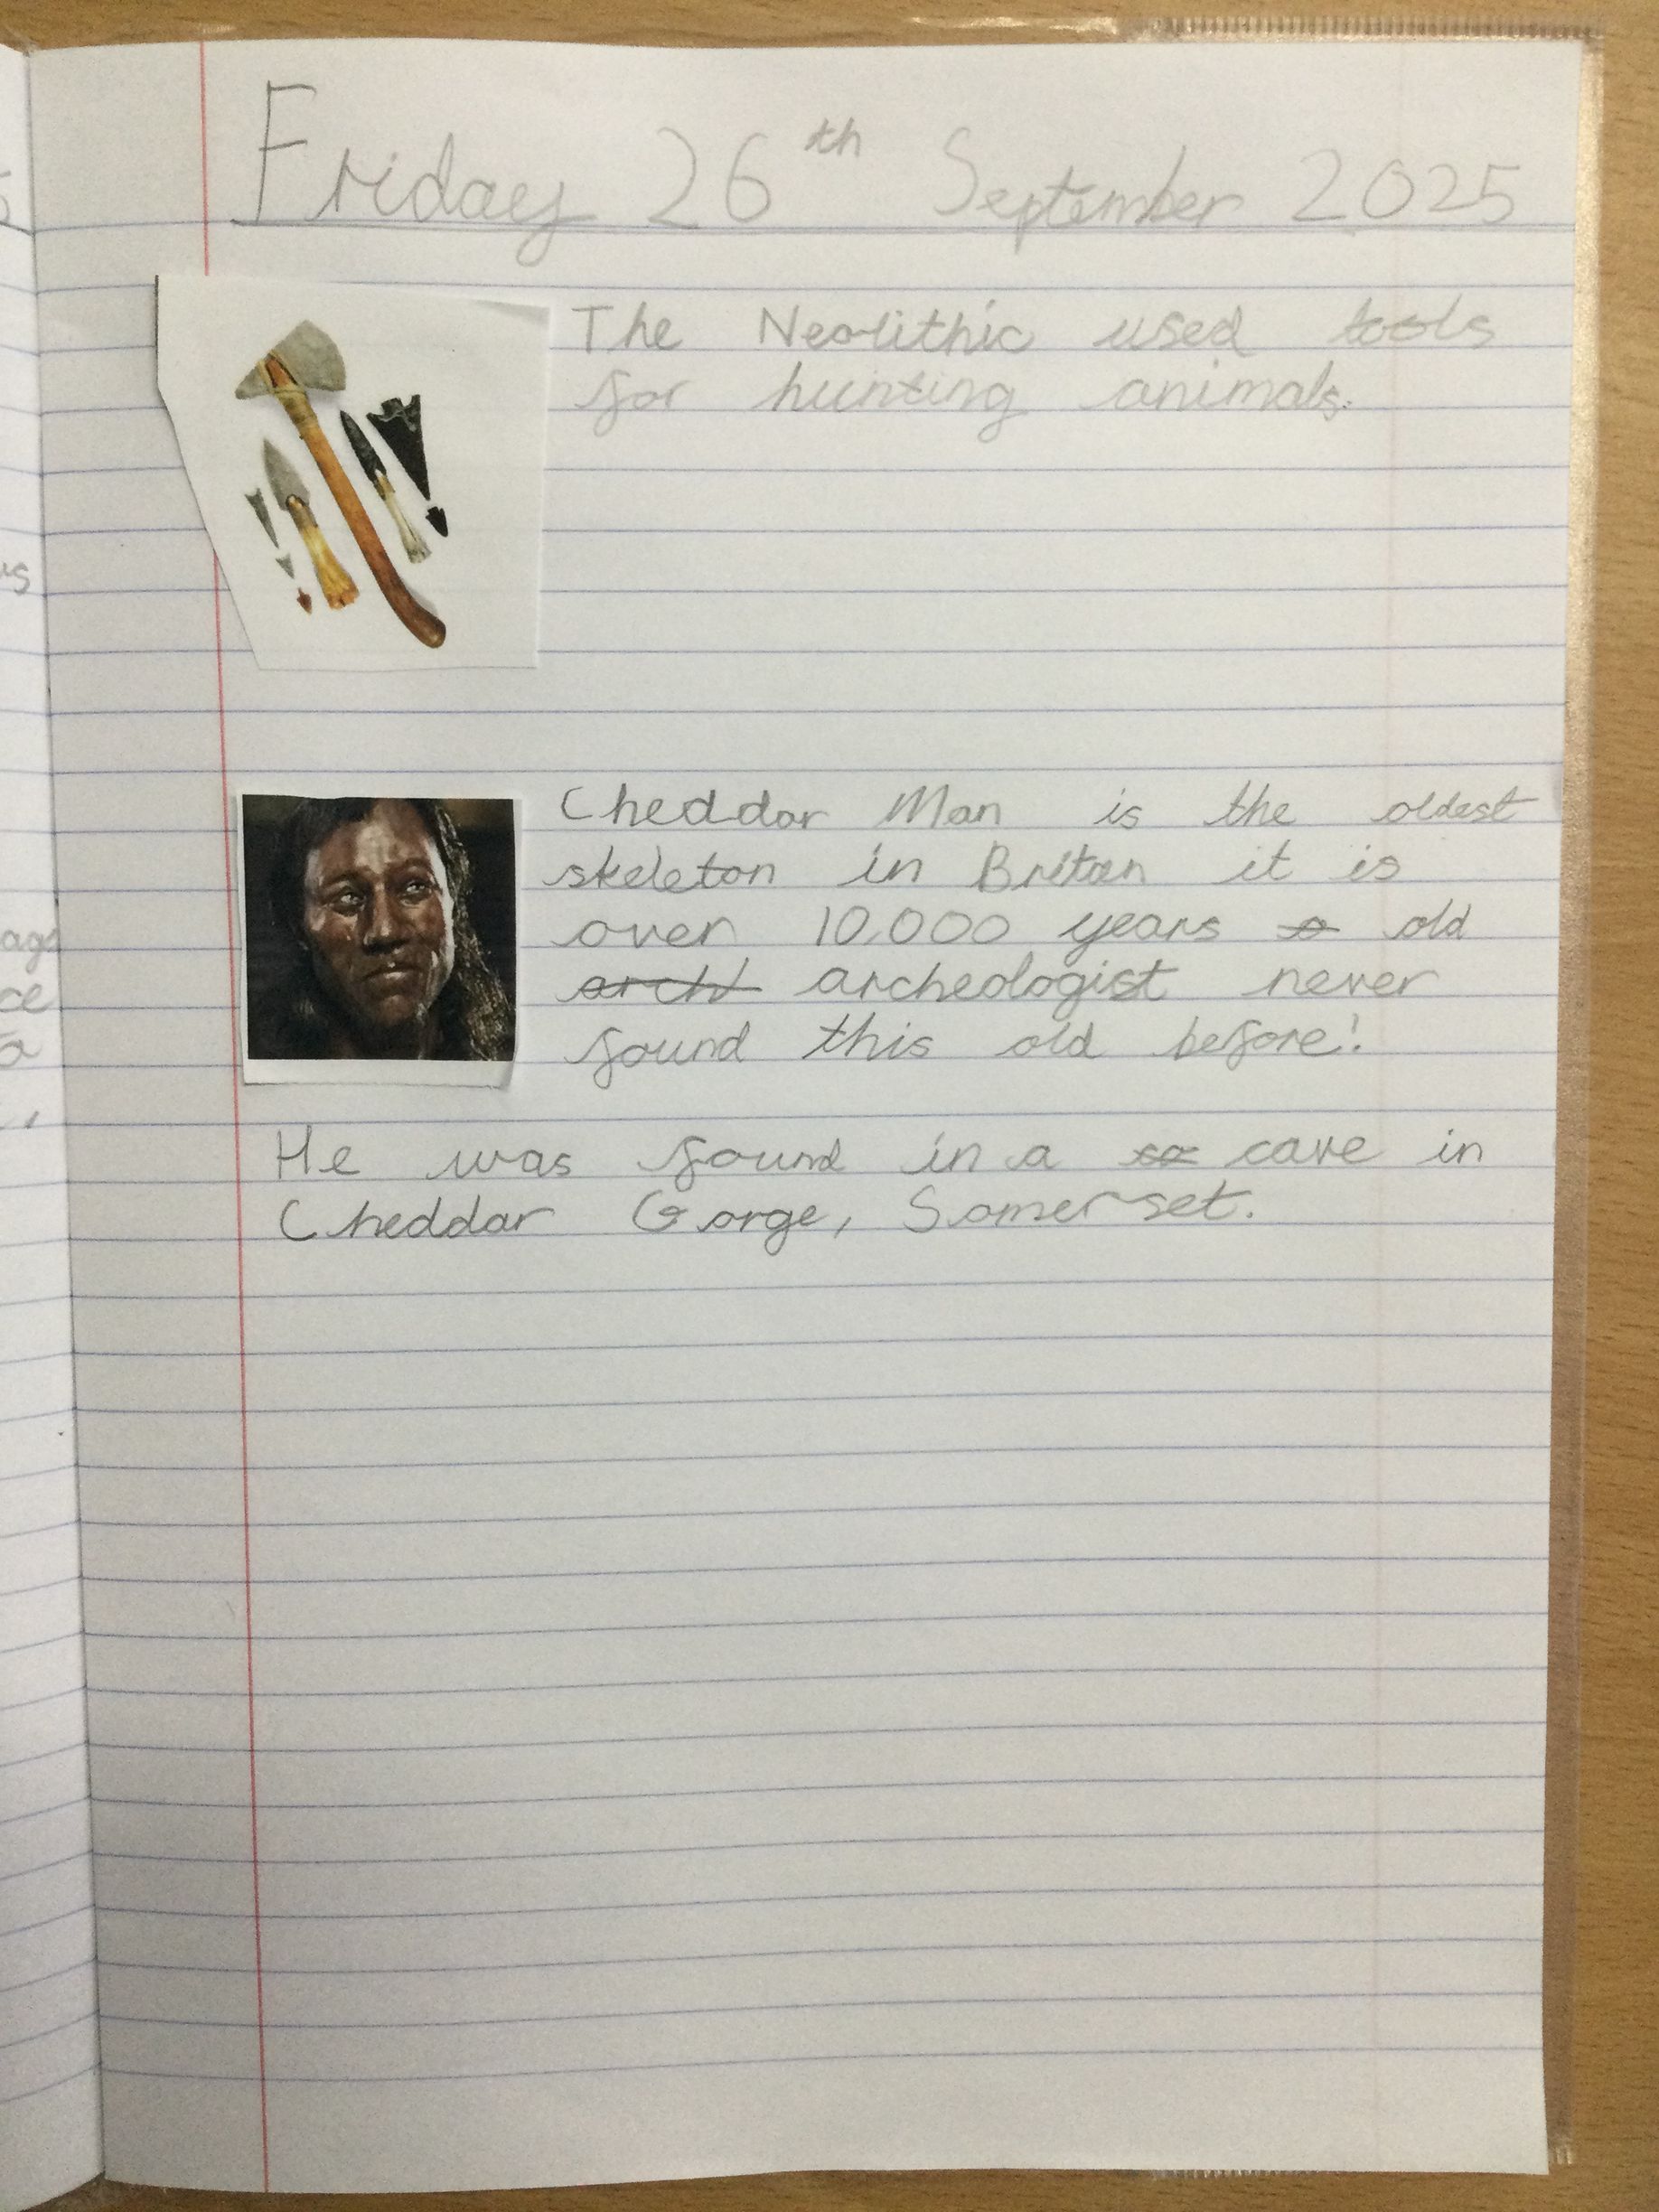 Friday 26th September 2025
The Neolithic used tools
for hunting animals.
Cheddar Man is the oldest
skeleton in Britan it is
over 10,000 years old
arch archeologist never
found this old before!
He was found in a cave in
Cheddar Gorge, Somerset.
5
us
age
ce
a